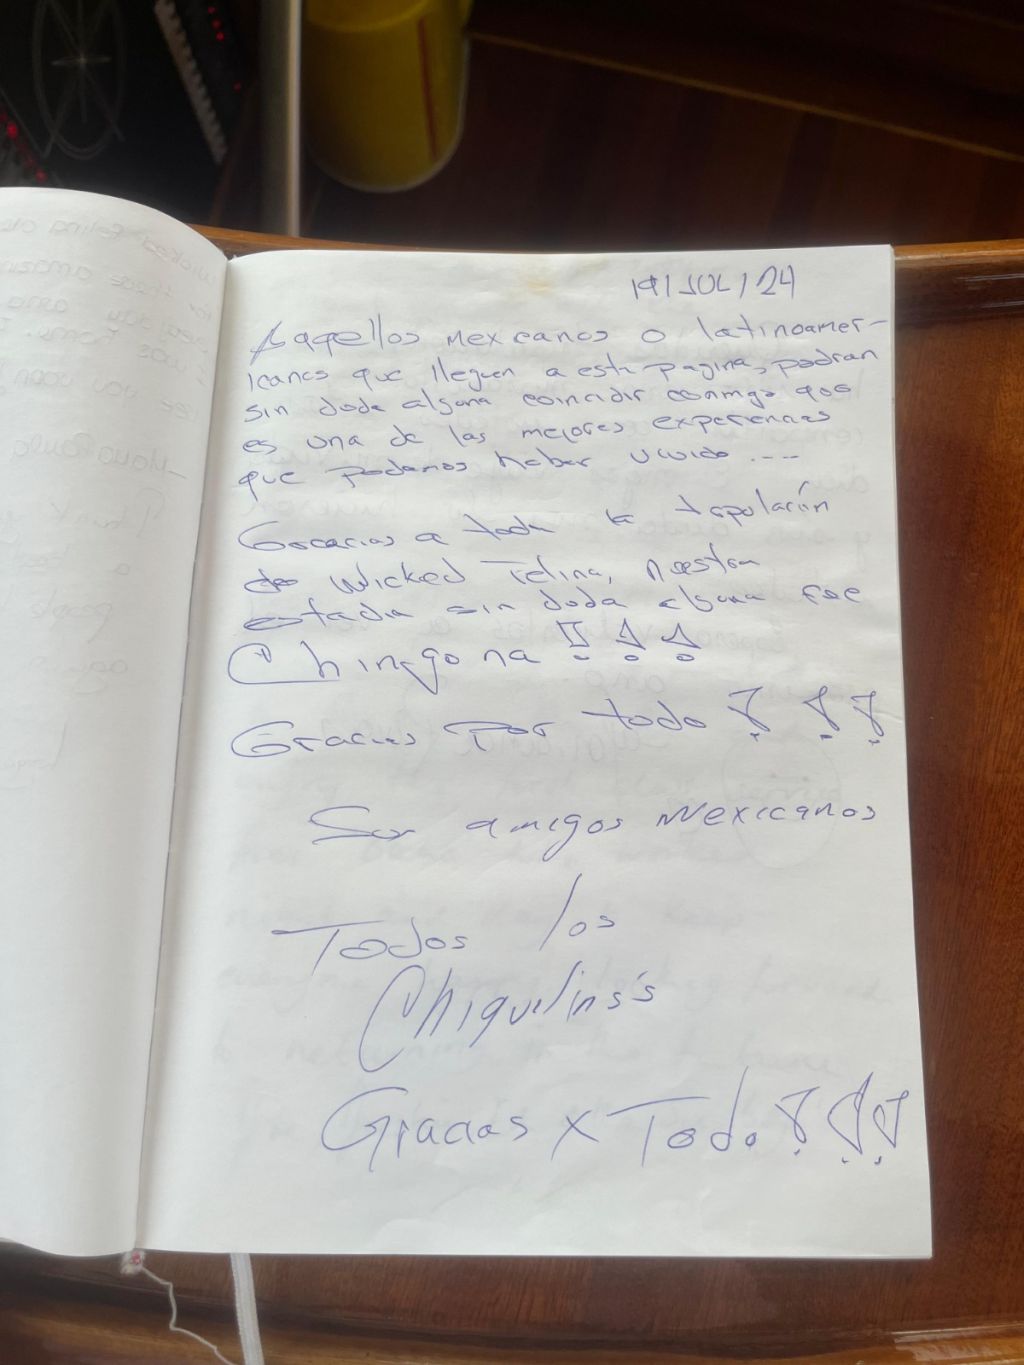 19/JUL/24
A aqellos Mexicanos o latinoamer-
icanos que lleguen a esta pagina, podran
sin duda alguna coincidir conmigo que
es una de las mejores experiencias
que podamos haber vivido ....
Gracias a toda la tripulación
de Wicked Felina, nuestra
estadia sin duda alguna fue
Chingona !!!
Gracias Por todo !!!
Sus amigos Mexicanos
Todos los
Chiquilins's
Gracias x Todo !!!